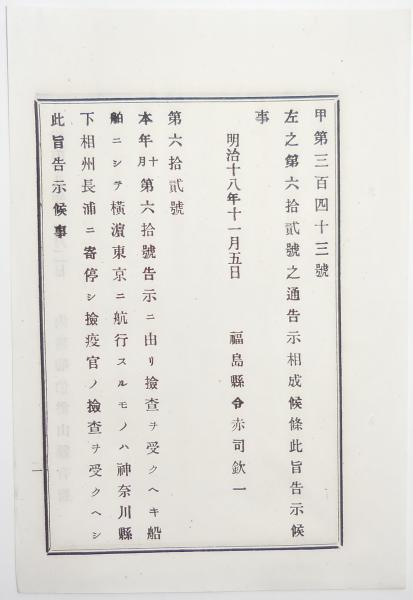 甲第三百四十三號
左之第六拾貳號之通告示相成候條此旨告示候
事
明治十八年十一月五日　福島縣令赤司欽一
第六拾貳號
本年十月第六拾號告示ニ由リ撿查ヲ受クヘキ船
舶ニシテ橫濵東京ニ航行スルモノハ神奈川縣
下相州長浦ニ寄停シ撿疫官ノ撿查ヲ受クヘシ
此旨告示候事
一